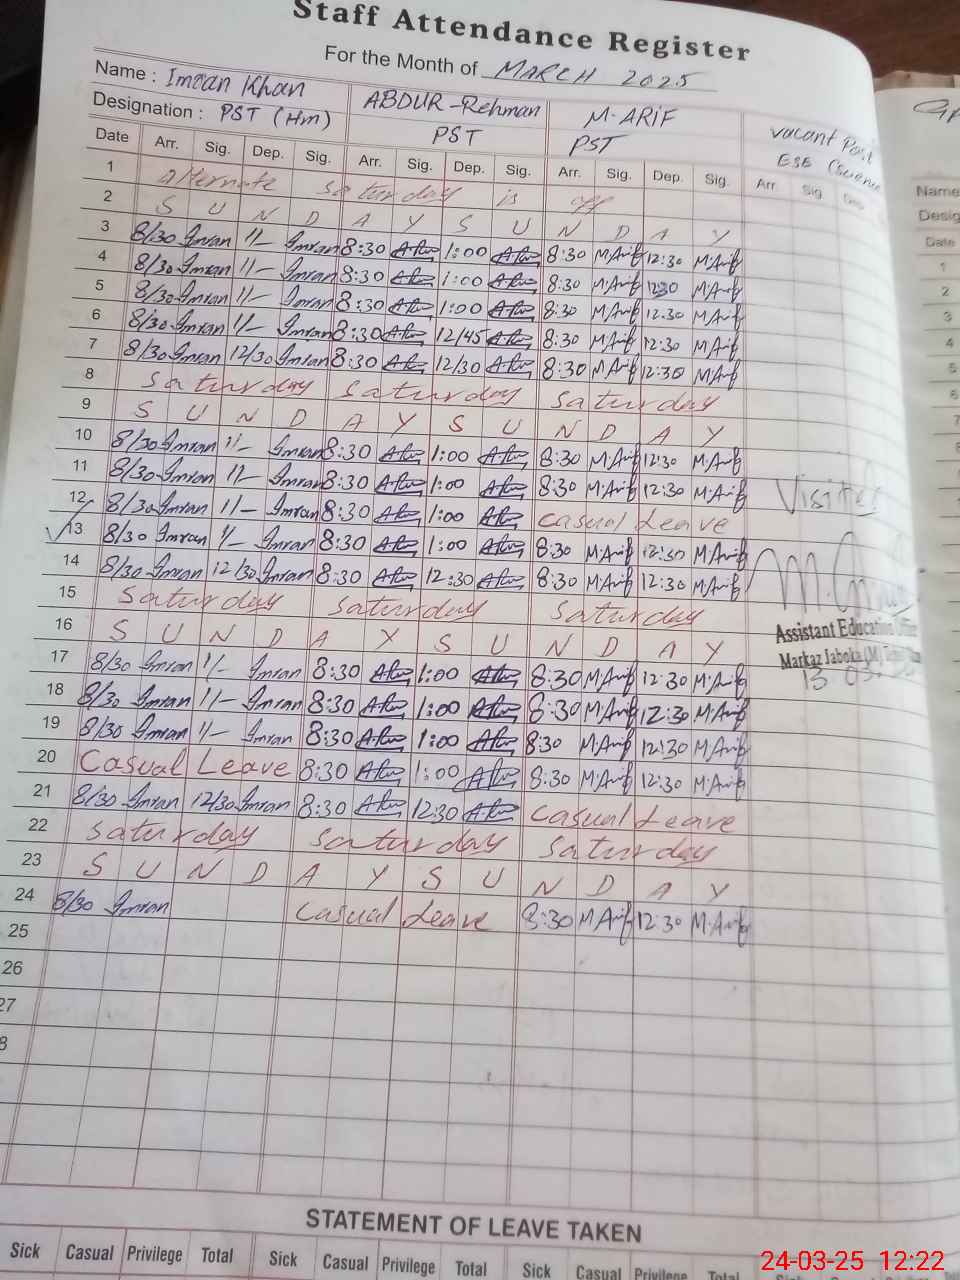 Staff Attendance Register
For the Month of MARCH 2025
Name : Imran Khan ABDUR-Rehman M.ARIF vacant Post
Designation : PST (Hm) PST PST ESE
Date Arr. Sig. Dep. Sig. Arr. Sig. Dep. Sig. Arr. Sig. Dep. Sig. Arr Sig Dep
1 alternate saturday is off
2 S U N D A Y S U N D A Y
3 8/30 Imran 1/- Imran 8:30 1:00 8:30 M.Arif 12:30 M.Arif
4 8/30 Imran 1/- Imran 8:30 1:00 8:30 M.Arif 12:30 M.Arif
5 8/30 Imran 1/- Imran 8:30 1:00 8:30 M.Arif 12:30 M.Arif
6 8/30 Imran 1/- Imran 8:30 12/45 8:30 M.Arif 12:30 M.Arif
7 8/30 Imran 12/30 Imran 8:30 12/30 8:30 M.Arif 12:30 M.Arif
8 saturday saturday saturday
9 S U N D A Y S U N D A Y
10 8/30 Imran 1/- Imran 8:30 1:00 8:30 M.Arif 12:30 M.Arif
11 8/30 Imran 1/- Imran 8:30 1:00 8:30 M.Arif 12:30 M.Arif
12 8/30 Imran 1/- Imran 8:30 1:00 casual Leave
13 8/30 Imran 1/- Imran 8:30 1:00 8:30 M.Arif 12:30 M.Arif
14 8/30 Imran 12/30 Imran 8:30 12:30 8:30 M.Arif 12:30 M.Arif
15 saturday saturday saturday
16 S U N D A Y S U N D A Y
17 8/30 Imran 1/- Imran 8:30 1:00 8:30 M.Arif 12:30 M.Arif
18 8/30 Imran 1/- Imran 8:30 1:00 8:30 M.Arif 12:30 M.Arif
19 8/30 Imran 1/- Imran 8:30 1:00 8:30 M.Arif 12:30 M.Arif
20 Casual Leave 8:30 1:00 8:30 M.Arif 12:30 M.Arif
21 8/30 Imran 12/30 Imran 8:30 12:30 casual Leave
22 saturday saturday saturday
23 S U N D A Y S U N D A Y
24 8/30 Imran casual Leave 8:30 M.Arif 12:30 M.Arif
25
26
27
8
Visited
Assistant Education
Markaz Jaboka (M)
13 03
STATEMENT OF LEAVE TAKEN
Sick Casual Privilege Total Sick Casual Privilege Total Sick Casual Privilege Total Sick
Name
Desig
Date
1
2
3
4
5
6
7
24-03-25 12:22